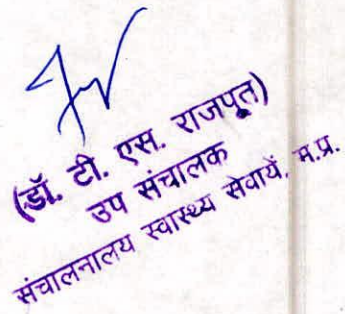 (डॉ. टी. एस. राजपूत)
उप संचालक
संचालनालय स्वास्थ्य सेवायें, म.प्र.